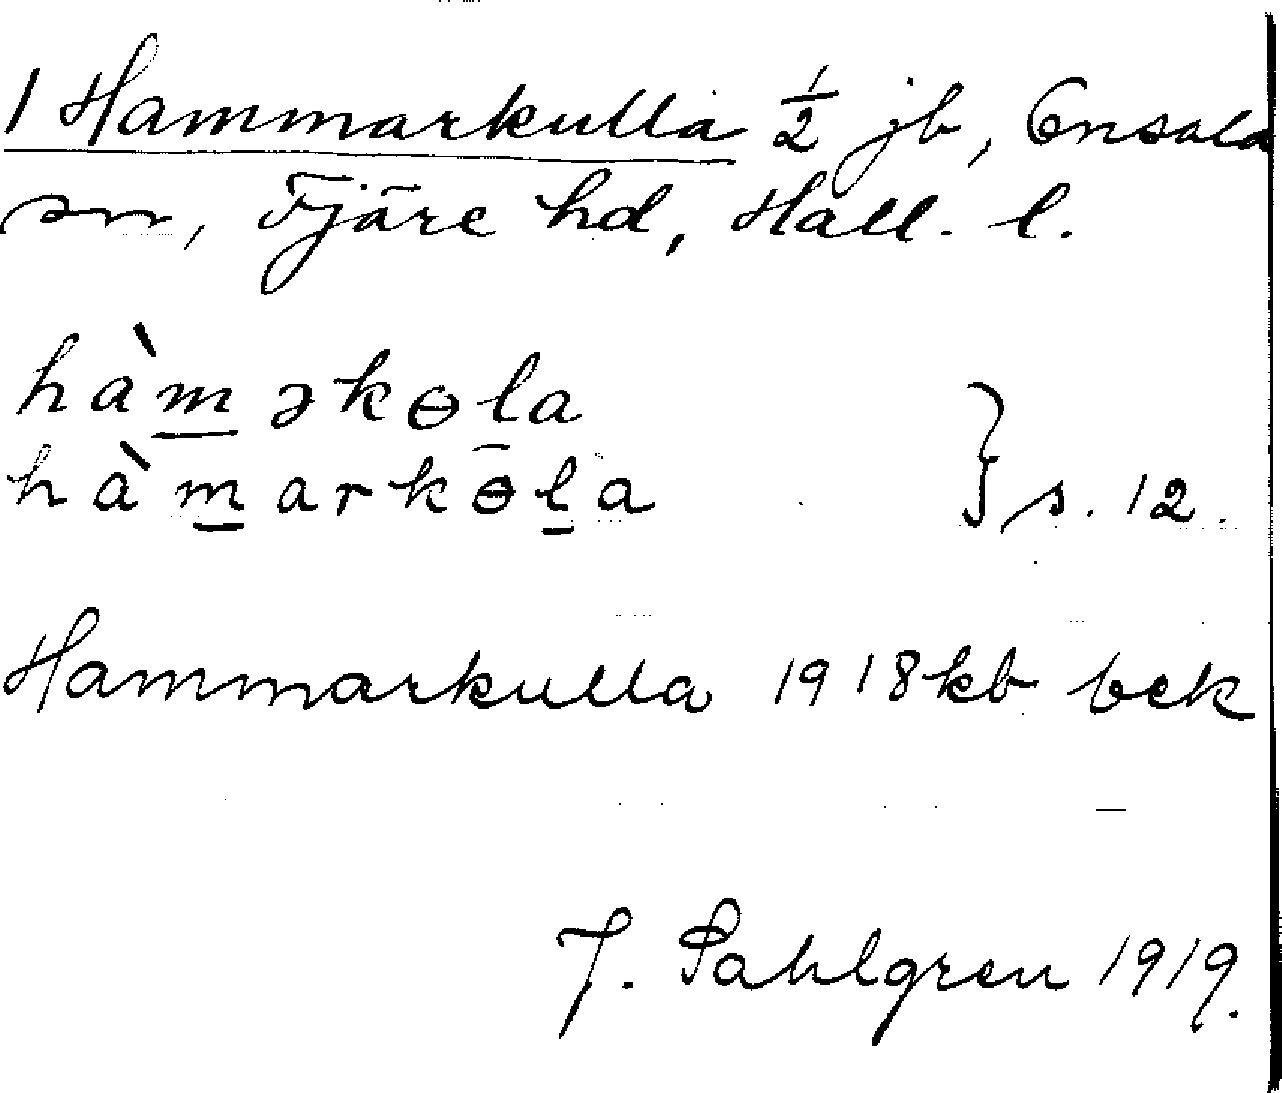 1 Hammarkulla ½ jb, Onsala
sn, Fjäre hd, Hall. l.
hàm̲əkɵla
hàm̲arkɵ̄l̲a } s. 12.
Hammarkulla 1918 kb bek
J. Sahlgren 1919.